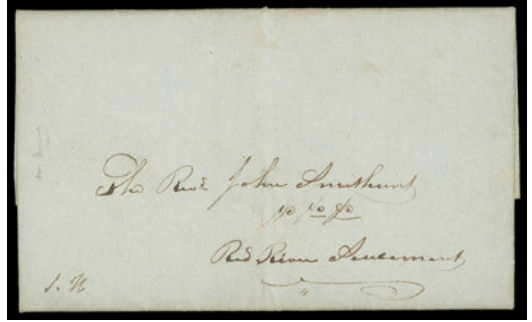 The Revd. John Smithurst
Red River Settlement